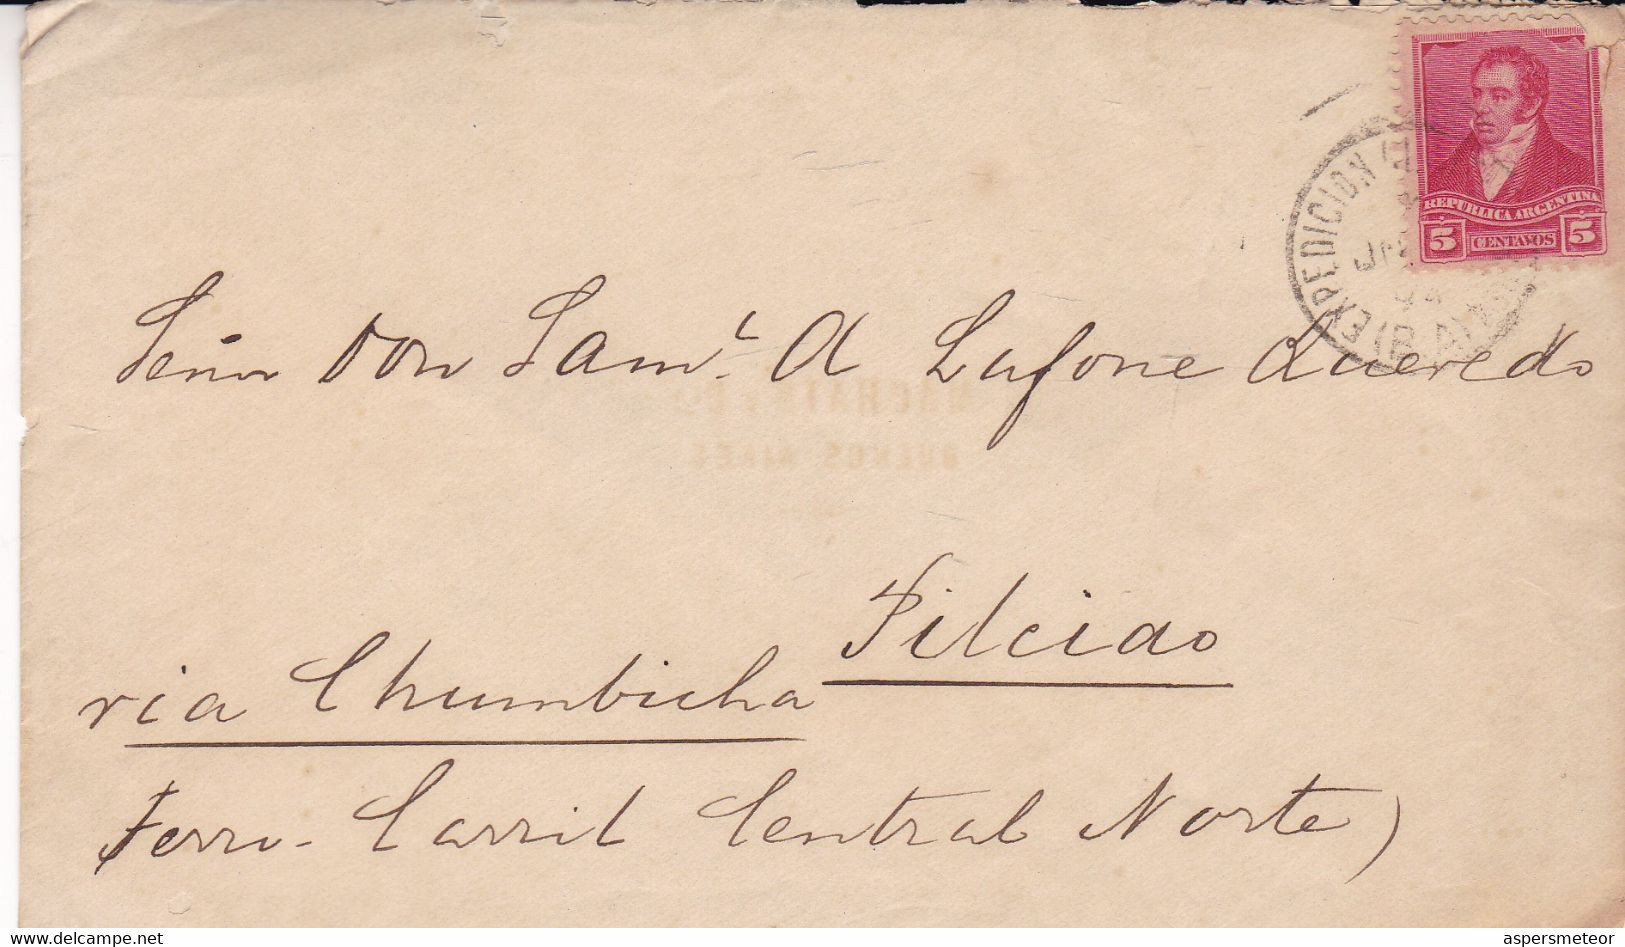 REPUBLICA ARGENTINA
5 CENTAVOS 5
EXPEDICION
Señor Don Saml. A Lafone Quevedo
BUENOS AIRES
Pilciao
via Chumbicha
Ferro-Carril Central Norte)
www.delcampe.net
aspersmeteor